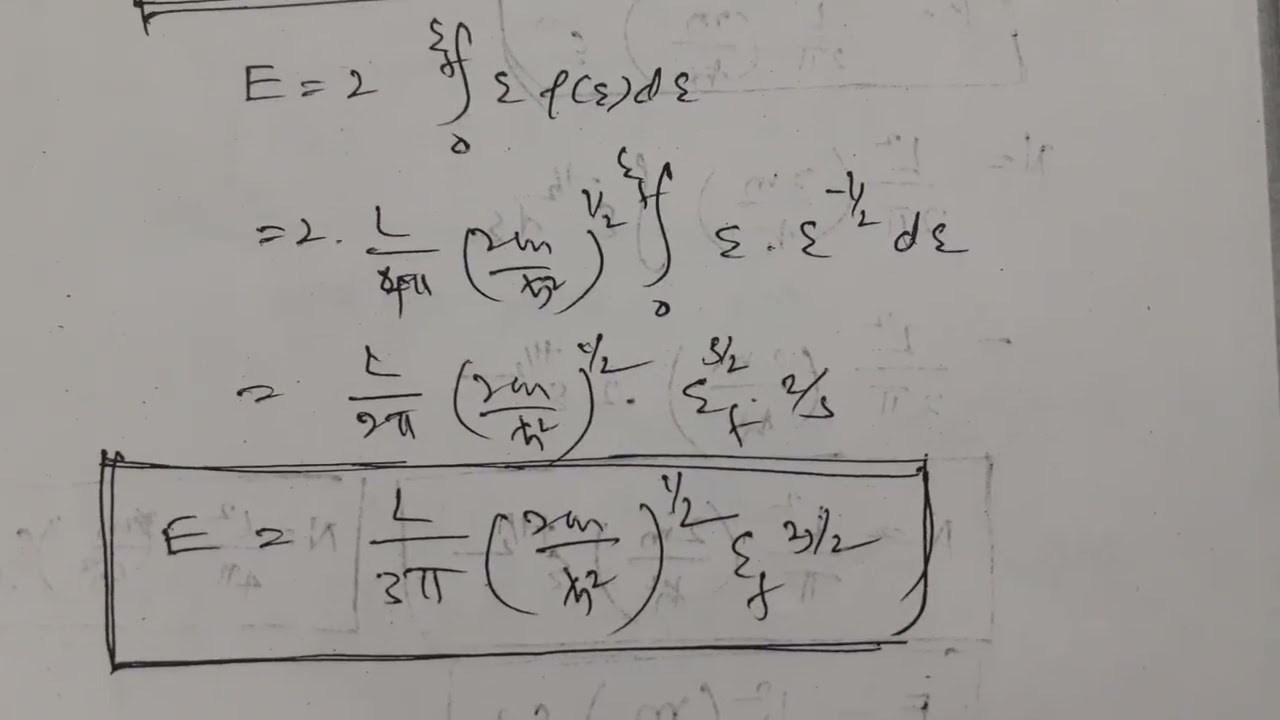 E = 2 ∫₀^{ε_f} ε f(ε) dε
= 2 · L/4π (2m/ħ²)^{1/2} ∫₀^{ε_f} ε · ε^{-1/2} dε
= L/2π (2m/ħ²)^{1/2} · ε_f^{3/2} · 2/3
E = L/3π (2m/ħ²)^{1/2} ε_f^{3/2}